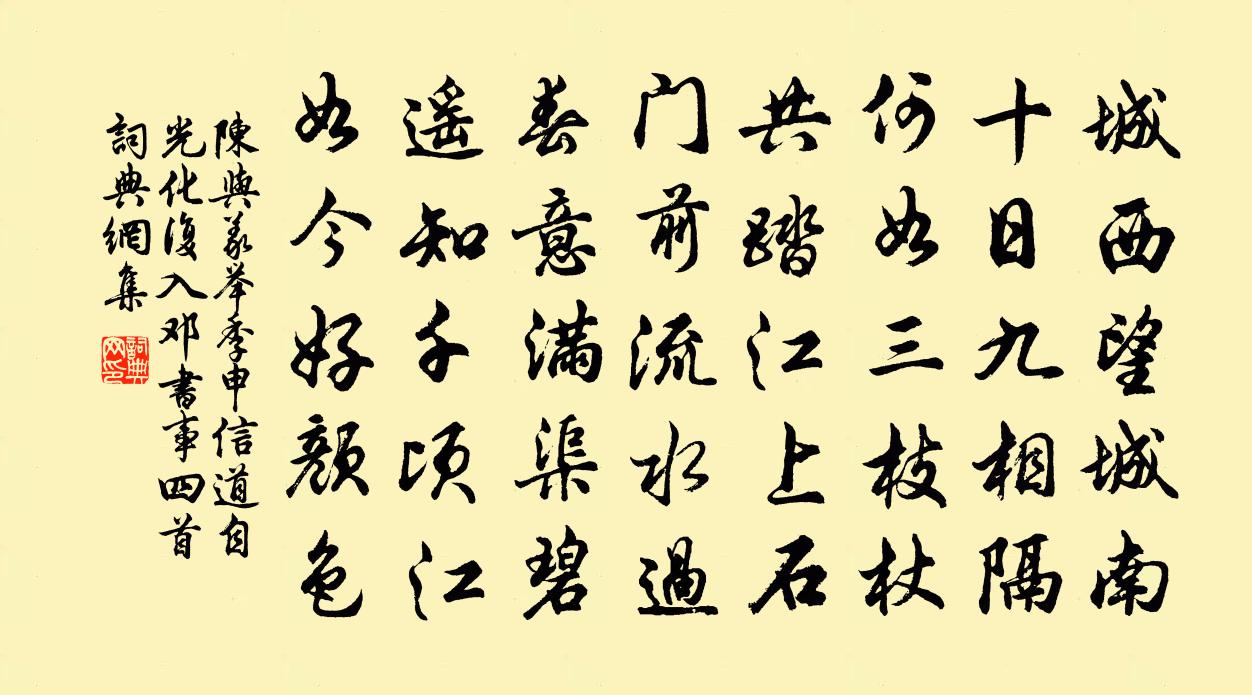 城西望城南
十日九相隔
何如三枝杖
共踏江上石
门前流水过
春意满渠碧
遥知千顷江
如今好颜色
陳與義举季申信道自
光化復入邓書事四首
詞典網集
詞典网印